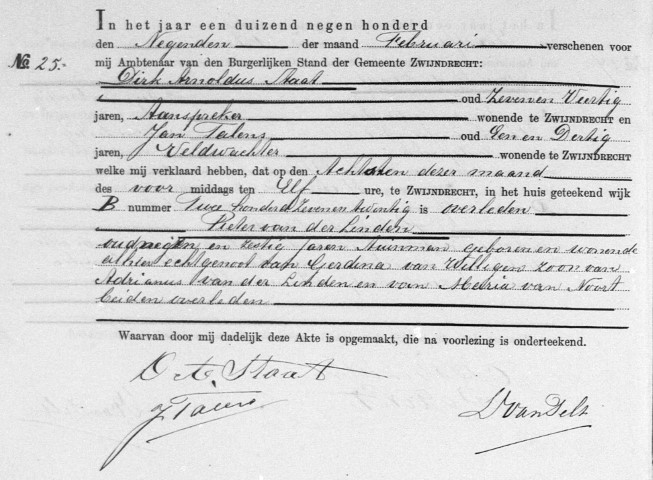 In het jaar een duizend negen honderd
den Negenden der maand Februari verschenen voor
No 25.- mij Ambtenaar van den Burgerlijken Stand der Gemeente ZWIJNDRECHT:
Dirk Arnoldus Staat
oud Zeven en Veertig
jaren, Aanspreker wonende te ZWIJNDRECHT en
Jan Talens oud Een en Dertig
jaren, Veldwachter wonende te ZWIJNDRECHT
welke mij verklaard hebben, dat op den Achtsten dezer maand
des voor middags ten Elf ure, te ZWIJNDRECHT, in het huis geteekend wijk
B nummer Twee honderd Zeven en twintig is overleden
Pieter van der Linden
oud negen en zestig jaren geboren en wonende
alhier echtgenoot van Gerdina van Willigens zoon van
Adrianus van der Linden en van Maria van Noort
beiden overleden
Waarvan door mij dadelijk deze Akte is opgemaakt, die na voorlezing is onderteekend.
D A Staat
J Talens
D van Pelt